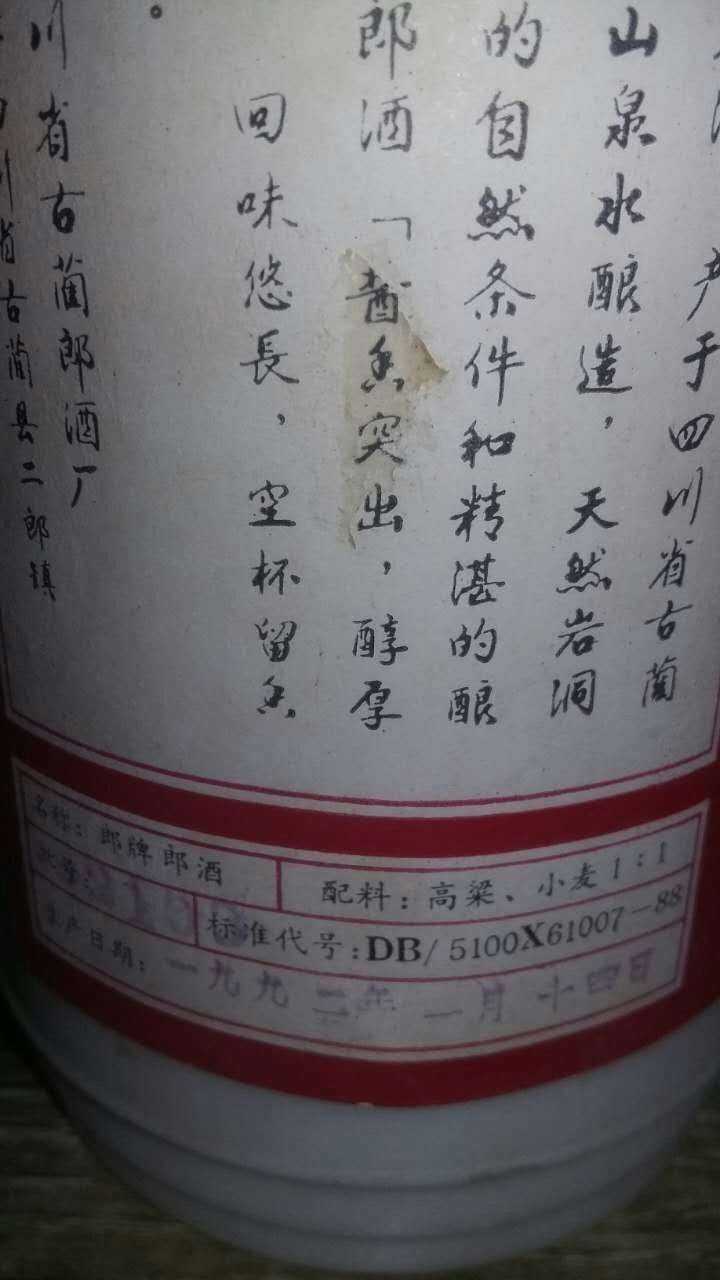 产于四川省古蔺
山泉水酿造，天然岩洞
的自然条件和精湛的酿
郎酒「酱香突出，醇厚
回味悠長，空杯留香
。
川省古蔺郎酒厂
四川省古蔺县二郎镇
名称：郎牌郎酒
配料：高粱、小麦1：1
批号：
标准代号：DB/5100X61007-88
生产日期：一九九二年一月十四日